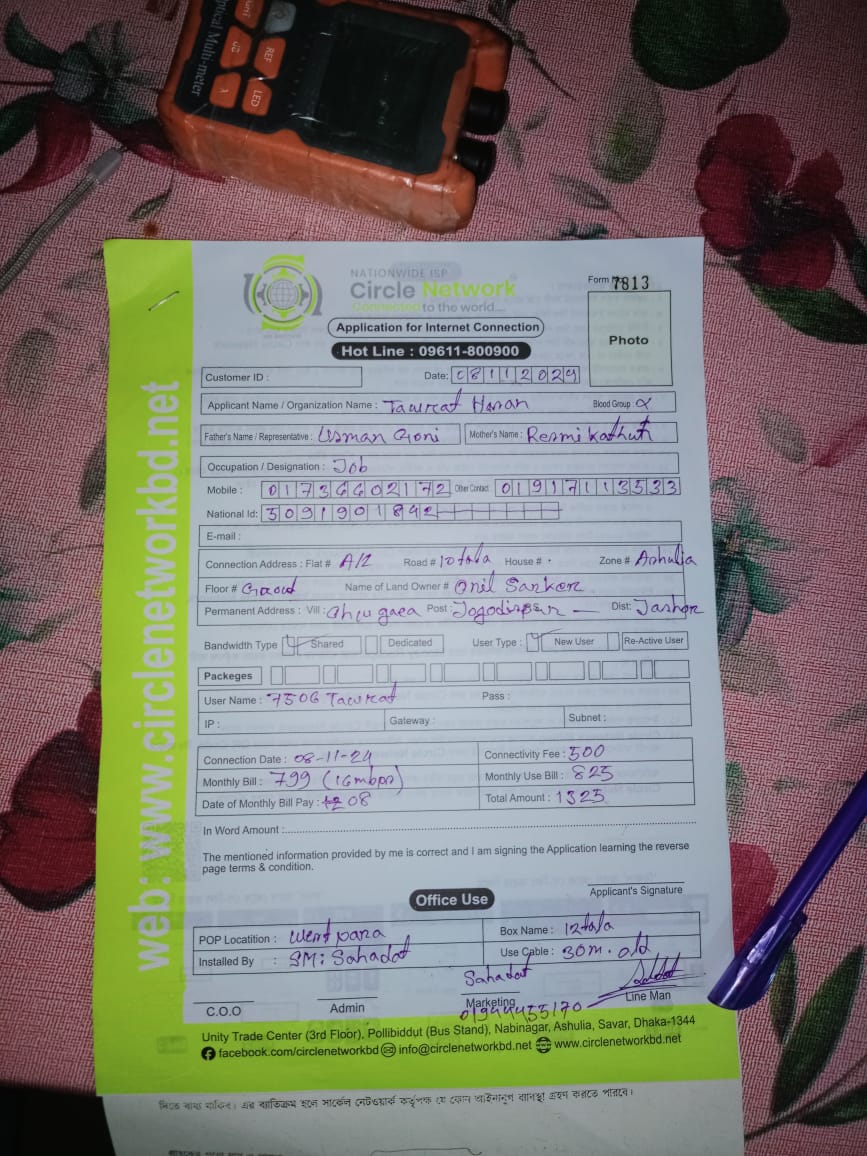 Optical Multi-meter
REF
LED
λ
NATIONWIDE ISP
Circle Network
Connected to the world...
Form No 7813
Application for Internet Connection
Photo
Hot Line : 09611-800900
Customer ID :
Date: 08112024
Applicant Name / Organization Name : Tawreat Hasan Blood Group :
Father's Name / Representative : Usman Goni Mother's Name : Resmi
Occupation / Designation : Job
Mobile : 01736602172 Other Contact 01917113533
National Id: 5091901842
E-mail :
Connection Address : Flat # A/2 Road # 10 tala House # Zone # Ashulia
Floor # Name of Land Owner # Onil Sarker
Permanent Address : Vill : Post : Dist: Jashor
Bandwidth Type Shared Dedicated User Type : New User Re-Active User
Packeges
User Name : 7506 Tawreat Pass :
IP : Gateway : Subnet :
Connection Date : 08-11-24 Connectivity Fee : 500
Monthly Bill : 799 (16mbps) Monthly Use Bill : 825
Date of Monthly Bill Pay : 08 Total Amount : 1325
In Word Amount :
The mentioned information provided by me is correct and I am signing the Application learning the reverse
page terms & condition.
Applicant's Signature
Office Use
POP Locatition : West para Box Name : 12 tala
Installed By : SM: Sahadat Use Cable : 30m. old
Sahadat
C.O.O Admin Marketing Line Man
Unity Trade Center (3rd Floor), Pollibiddut (Bus Stand), Nabinagar, Ashulia, Savar, Dhaka-1344
facebook.com/circlenetworkbd info@circlenetworkbd.net www.circlenetworkbd.net
web: www.circlenetworkbd.net
দিতে বাধ্য থাকিব। এর ব্যতিক্রম হলে সার্কেল নেটওয়ার্ক কর্তৃপক্ষ যে কোন আইনানুগ ব্যবস্থা গ্রহণ করতে পারবে।